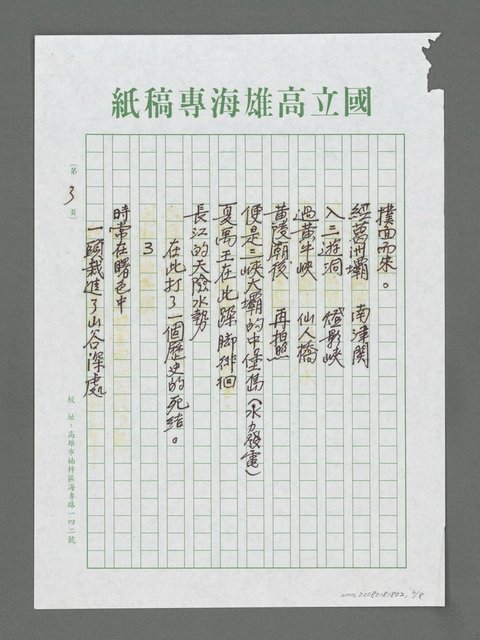 國立高雄海專稿紙
(第3頁)
撲面而來。
經葛洲壩 南津關
入三遊洞 燈影峽
過黃牛峽 仙人橋
黃陵廟後 再拍照
便是三峽大壩的中堡島(水力發電)
夏禹王在此跺脚徘徊
長江的大隄水勢
在此打了一個歷史的死結。
3
時常在曙色中
一頭栽進了山谷深處
校 址:高雄市楠梓區海專路一四二號
NMTL20080181802, 3/8